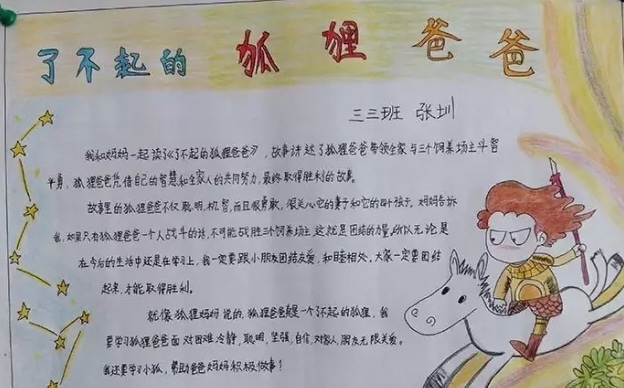 了不起的狐狸爸爸
三三班 张圳
我和妈妈一起读了《了不起的狐狸爸爸》,故事讲述了狐狸爸爸带领全家与三个饲养场主斗智
斗勇,狐狸爸爸凭借自己的智慧和全家人的共同努力,最终取得胜利的故事。
故事里的狐狸爸爸不仅聪明,机智,而且很勇敢,很关心它的妻子和它的四个孩子,妈妈告诉
我,如果只有狐狸爸爸一个人战斗的话,不可能战胜三个饲养场主,这就是团结的力量,所以无论是
在今后的生活中还是在学习上,我一定要跟小朋友团结友爱,和睦相处,大家一定要团结
起来,才能取得胜利。
就像狐狸妈妈说的,狐狸爸爸是一个了不起的狐狸,我
要学习狐狸爸爸面对困难冷静,聪明,坚强,自信,对家人,朋友无限关爱。
我还要学习小狐,帮助爸爸妈妈积极做事!